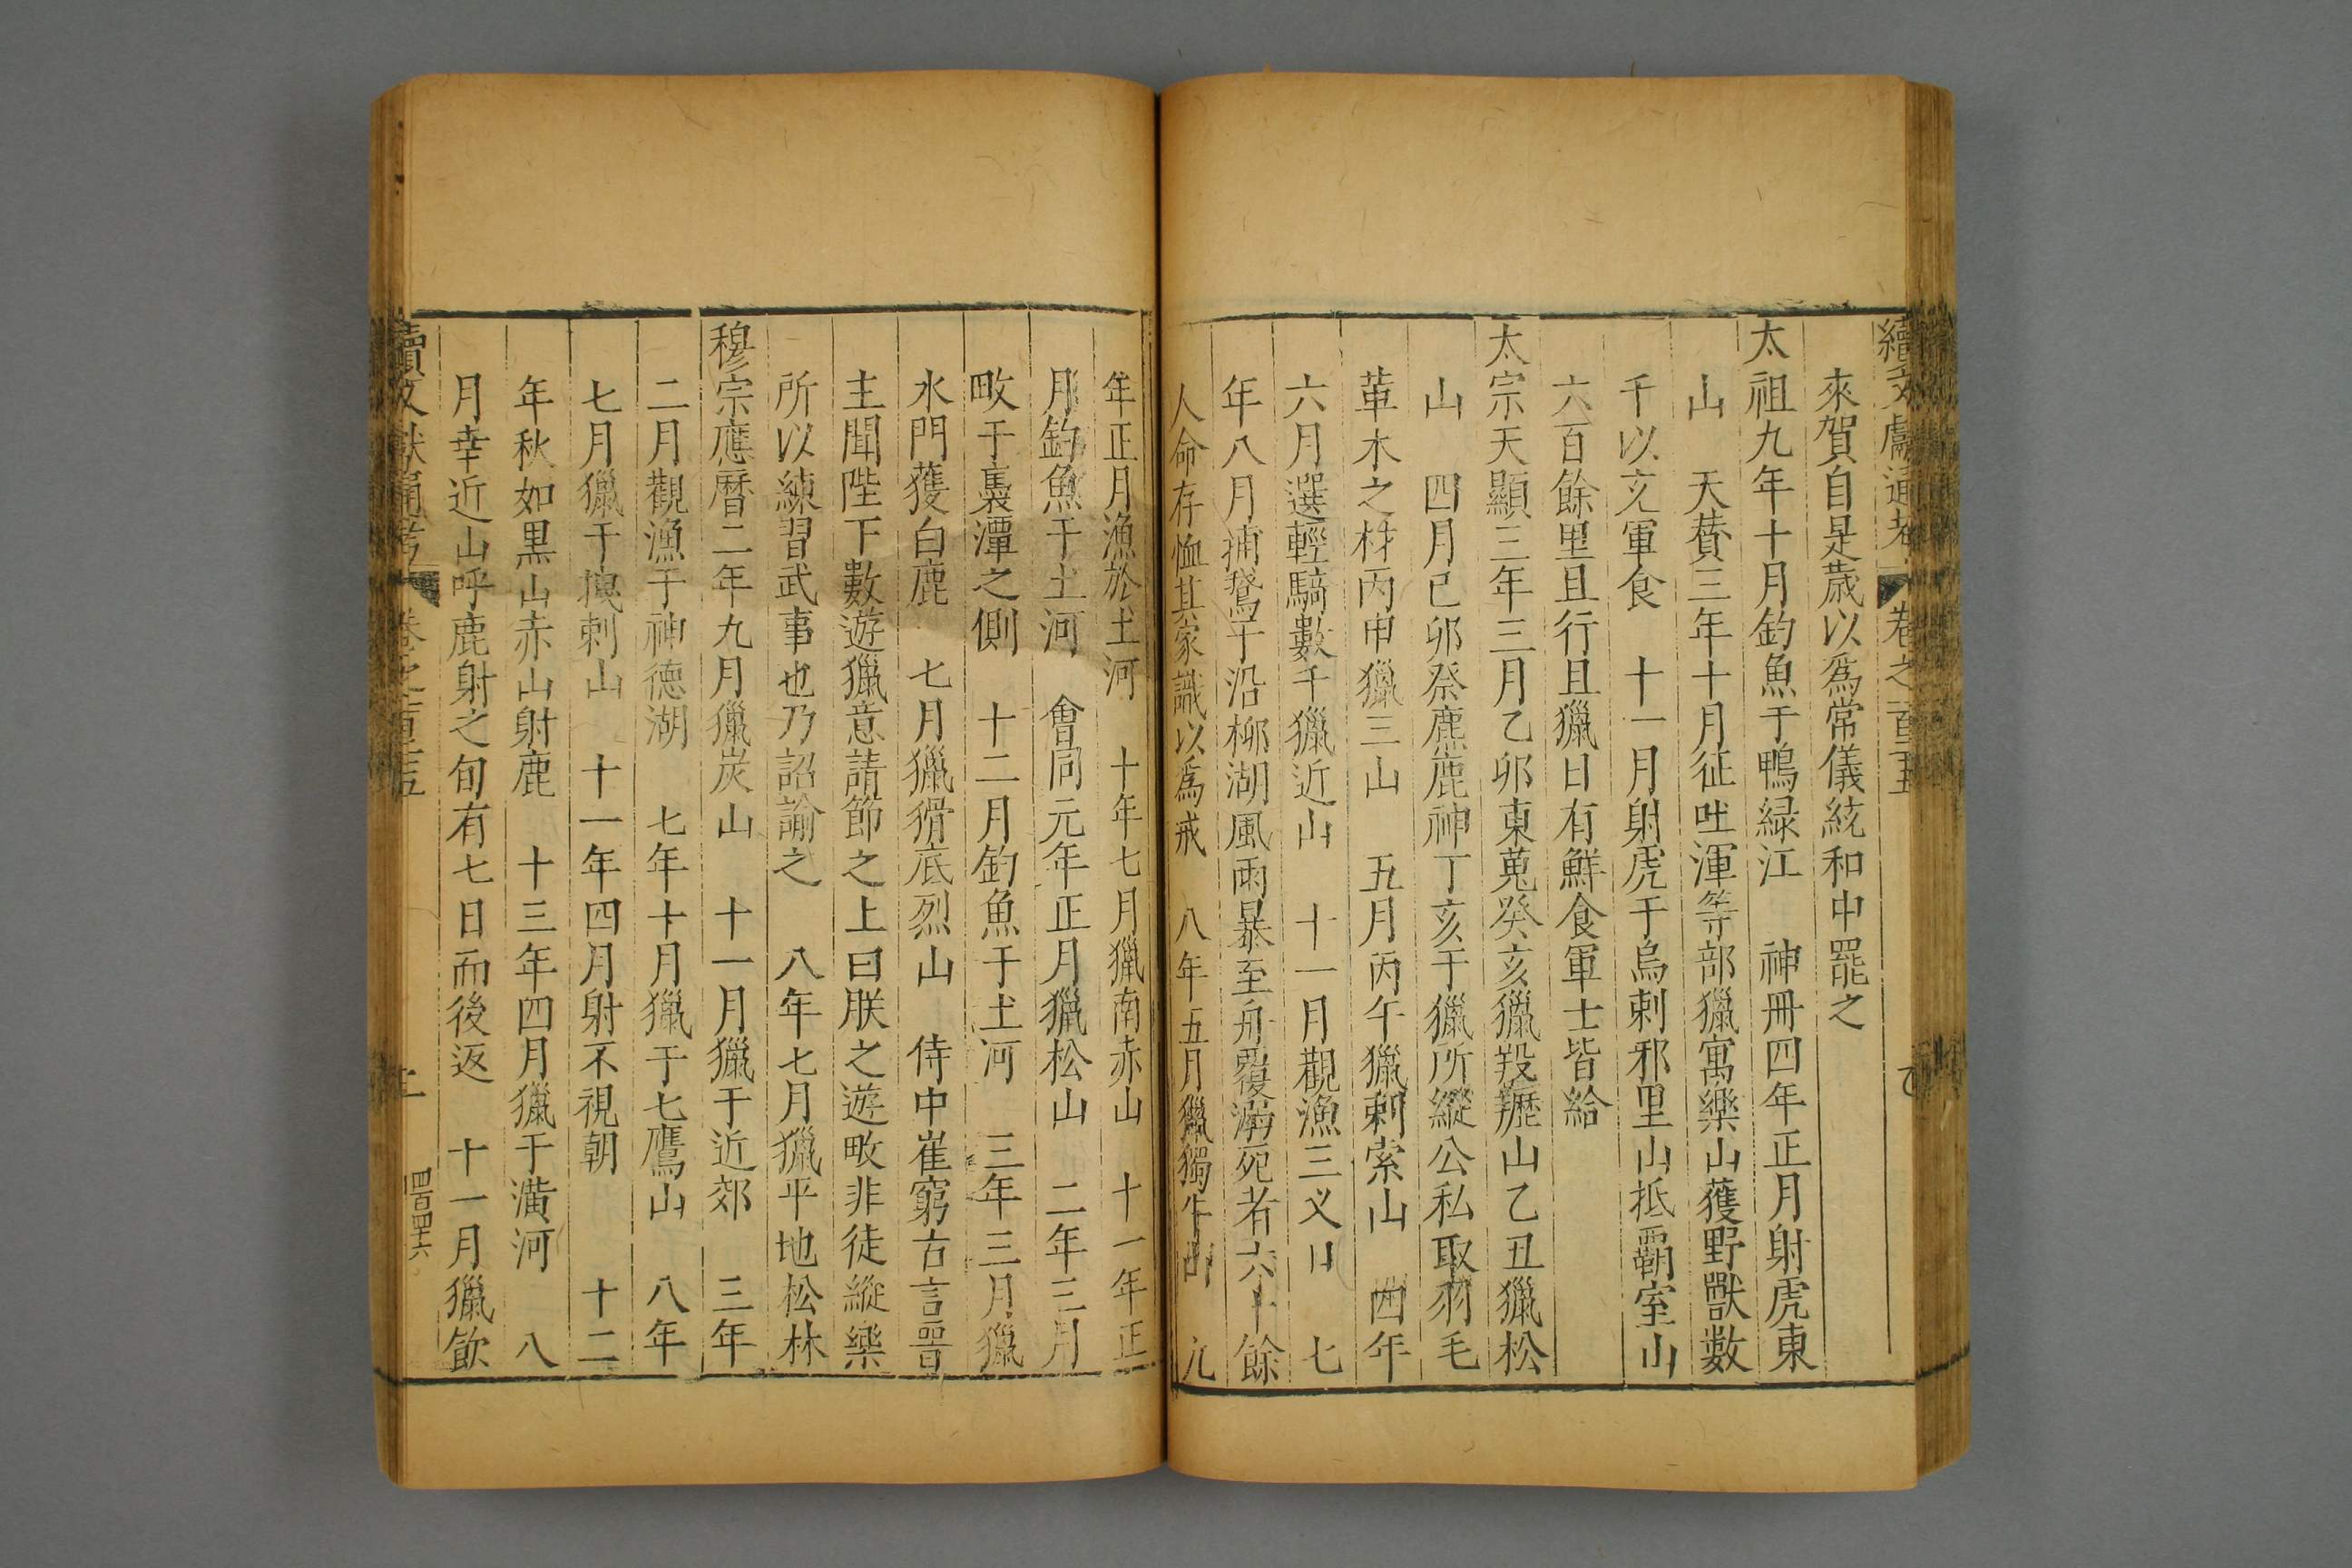 續文獻通考 卷之一百二十五
來賀自是歲以爲常儀統和中罷之
太祖九年十月釣魚于鴨綠江 神冊四年正月射虎東
山 天贊三年十月征吐渾等部獵寓樂山獲野獸數
千以充軍食 十一月射虎于烏剌邪里山抵覇室山
六百餘里且行且獵日有鮮食軍士皆給
太宗天顯三年三月乙卯東蒐癸亥獵羖䍽山乙丑獵松
山 四月己卯祭麃鹿神丁亥于獵所縱公私取羽毛
革木之材丙申獵三山 五月丙午獵剌索山 四年
六月選輕騎數千獵近山 十一月觀漁三义口 七
年八月捕鵞于沿柳湖風雨暴至舟覆溺死者六十餘
人命存恤其家識以爲戒 八年五月獵獨牛山 九
年正月漁於土河 十年七月獵南赤山 十一年正
月釣魚于土河 會同元年正月獵松山 二年三月
畋于褭潭之側 十二月釣魚于土河 三年三月獵
水門獲白鹿 七月獵猾底烈山 侍中崔窮古言晉
主聞陛下數遊獵意請節之上曰朕之遊畋非徒縱樂
所以練習武事也乃詔諭之 八年七月獵平地松林
穆宗應曆二年九月獵炭山 十一月獵于近郊 三年
二月觀漁于神德湖 七年十月獵于七鷹山 八年
七月獵于拽剌山 十一年四月射不視朝 十二
年秋如黑山赤山射鹿 十三年四月獵于潢河 八
月幸近山呼鹿射之旬有七日而後返 十一月獵飲
續文獻通考 卷之一百二十五 四百四十六